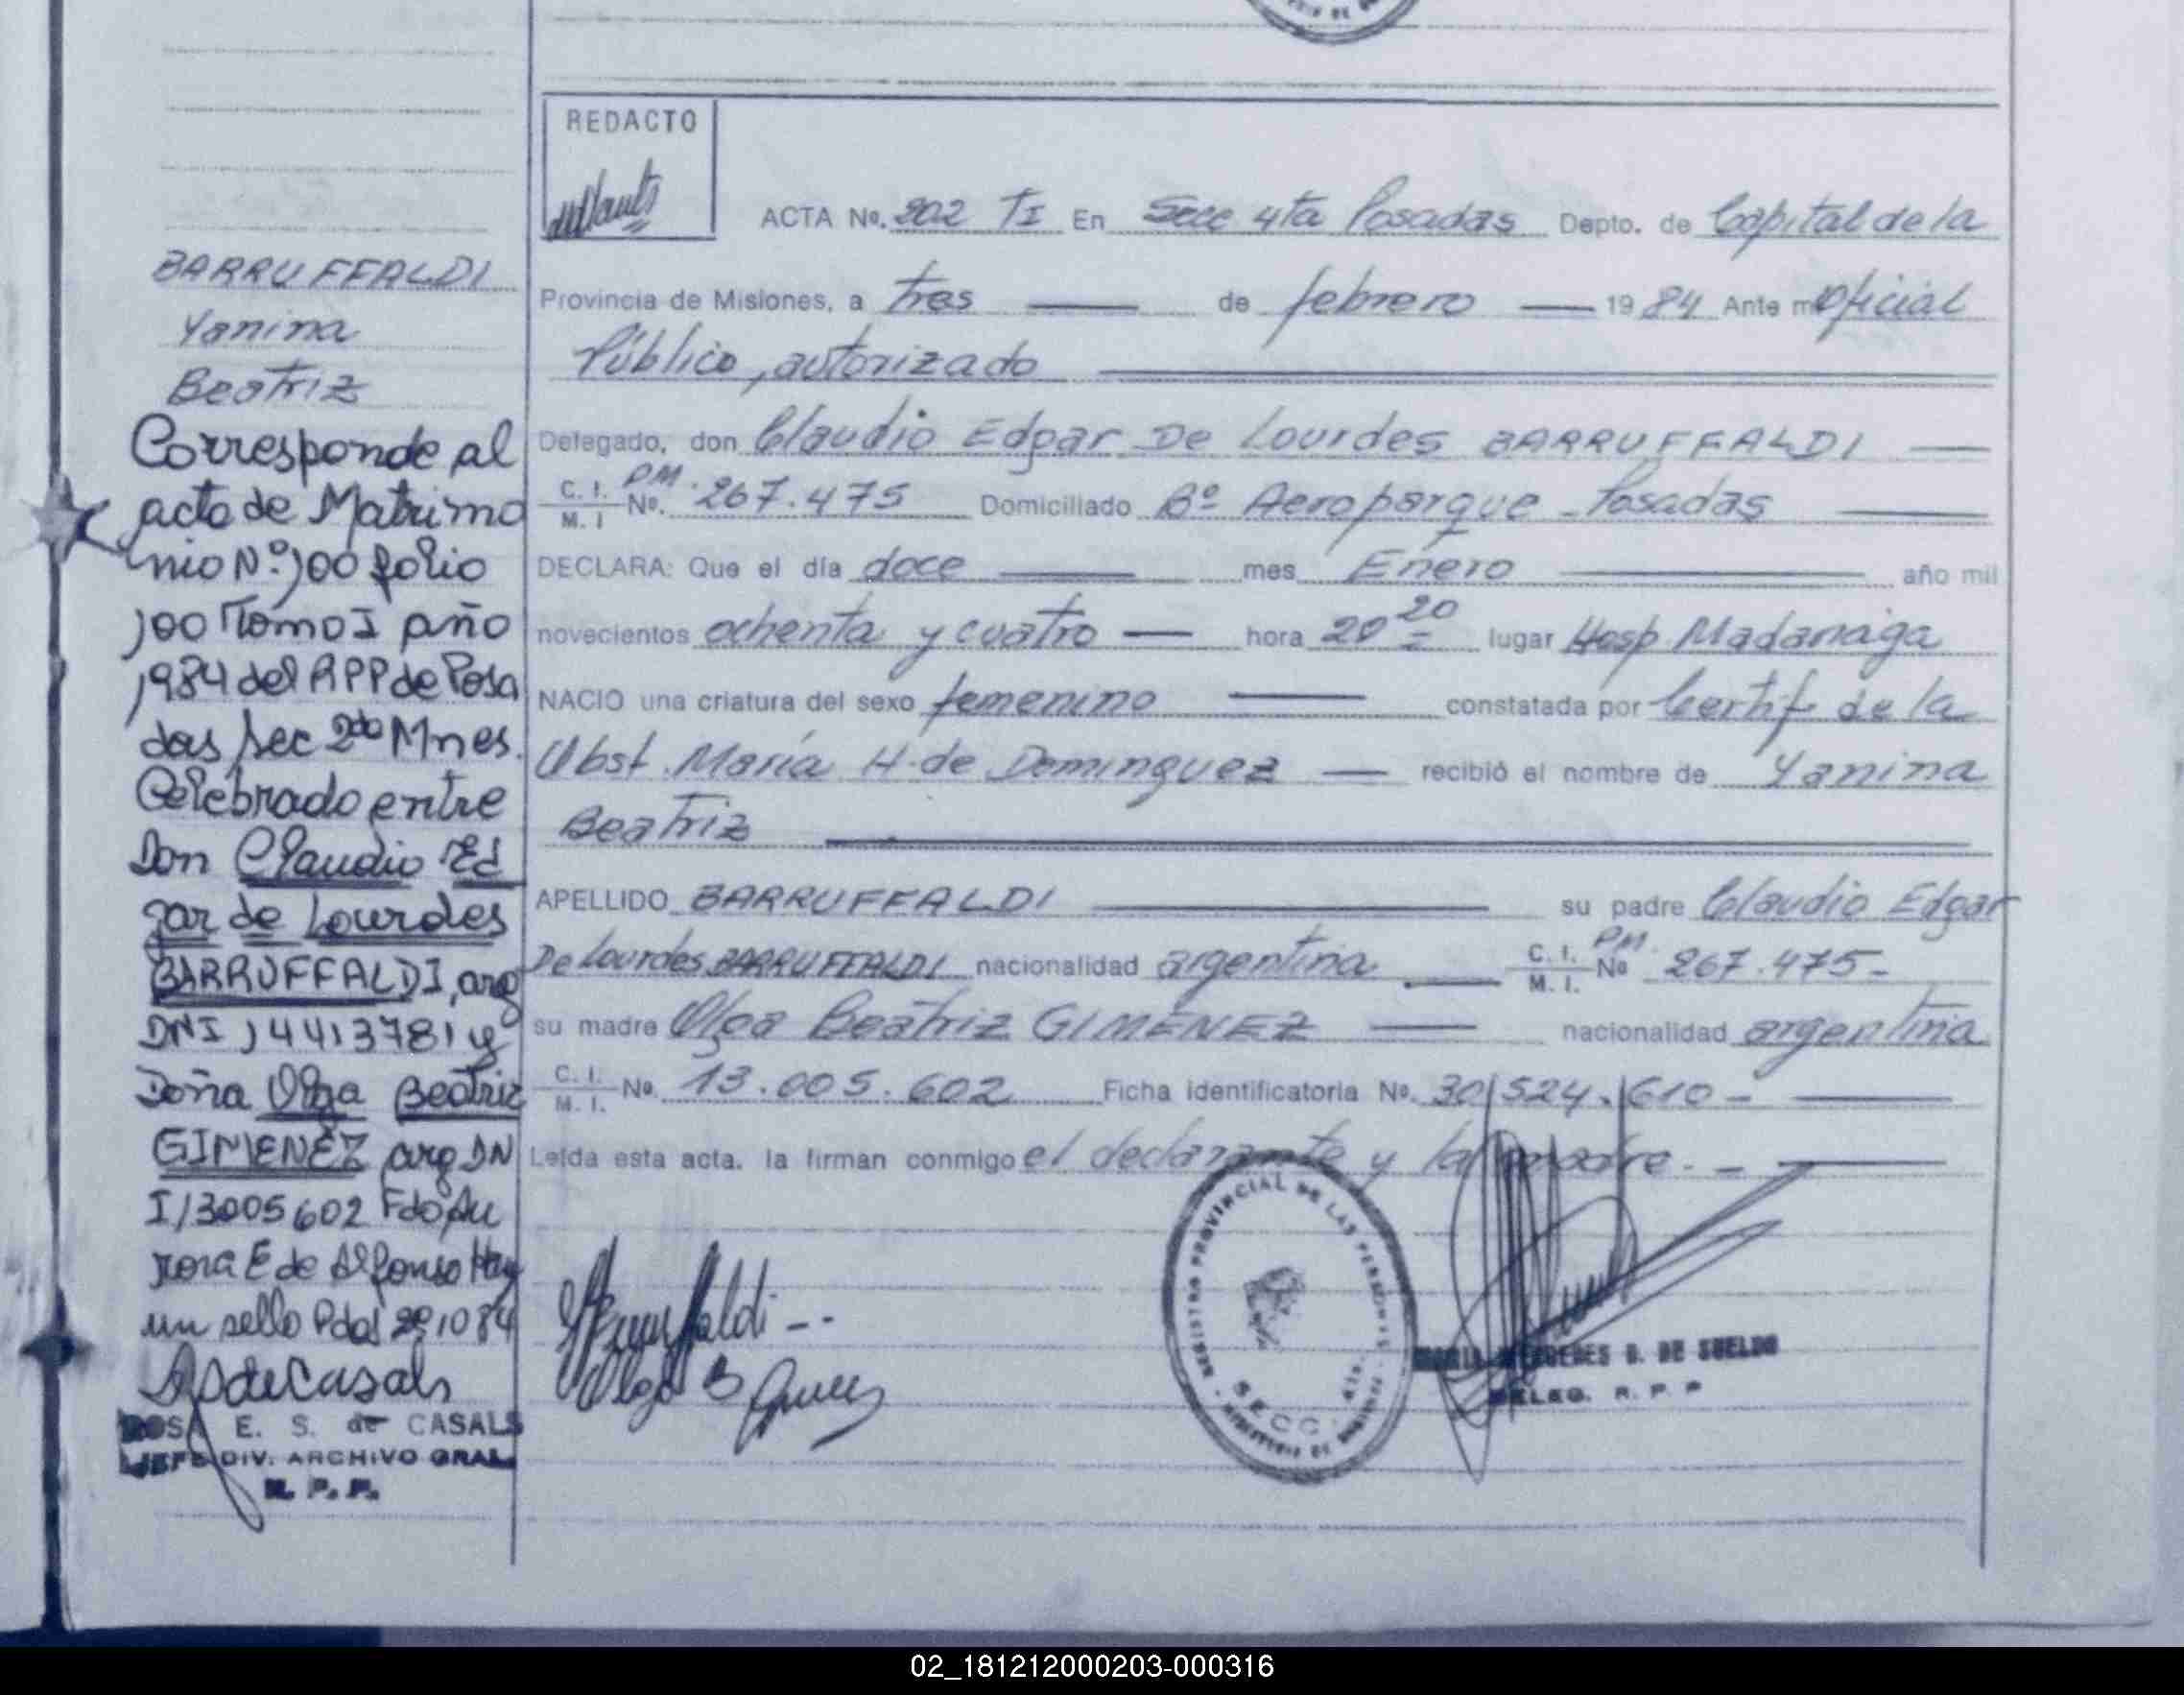 REDACTO
ACTA Nº. 202 TI En Secc 4ta Posadas Depto. de Capital de la
Provincia de Misiones, a tres de febrero 1984 Ante mi Oficial
Público, autorizado
Delegado, don Claudio Edgar De Lourdes BARRUFFALDI
C. I. M. I Nº. PM. 267.475 Domiciliado Bº Aeroparque - Posadas
DECLARA: Que el día doce mes Enero año mil
novecientos ochenta y cuatro hora 20 20 lugar Hosp Madariaga
NACIO una criatura del sexo femenino constatada por Certif de la
Obst. María H. de Dominguez recibió el nombre de Yanina
Beatriz
APELLIDO BARRUFFALDI su padre Claudio Edgar
De Lourdes BARRUFFALDI nacionalidad argentina C. I. M. I. Nº PM. 267.475-
su madre Olga Beatriz GIMÉNEZ nacionalidad argentina
C. I. M. I. Nº. 13.005.602 Ficha identificatoria Nº. 30/524.610 -
Leída esta acta, la firman conmigo el declarante y la madre. -
BARRUFFALDI
Yanina
Beatriz
Corresponde al
acta de Matrimo
nio Nº 100 folio
100 Tomo I año
1984 del RPP de Posa
das Sec 2da Mnes.
Celebrado entre
Don Claudio Ed
gar de Lourdes
BARRUFFALDI, arg
DNI 14413781 y
Doña Olga Beatriz
GIMENEZ arg DN
I 13005602 Fdo Au
rora E de Alfonso Hay
un sello Pdas 291084
ROSA E. S. de CASALS
JEFE DIV. ARCHIVO GRAL.
R. P. P.
REGISTRO PROVINCIAL DE LAS PERSONAS
SECC. 4ta.
MARIA MERCEDES B. DE SUELDO
DELEG. R. P. P
02_181212000203-000316